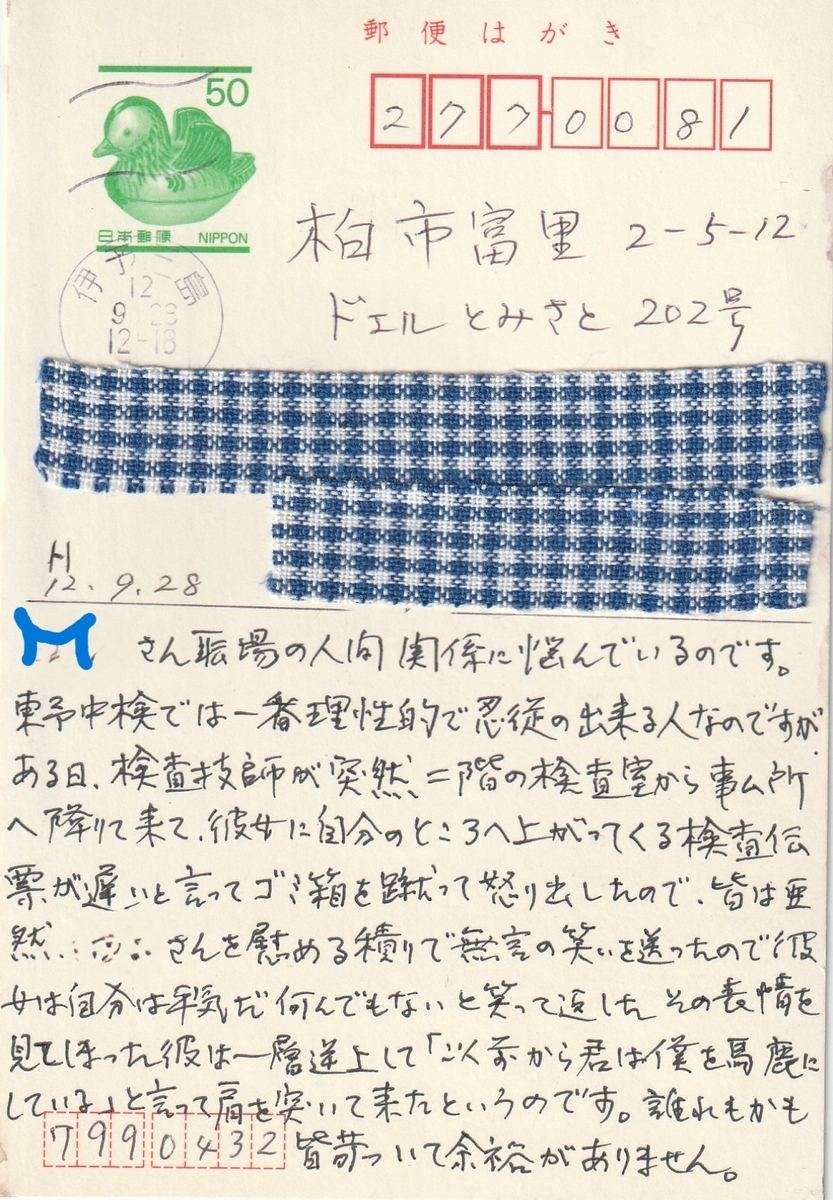 郵便はがき
50
日本郵便 NIPPON
277-0081
伊予三島
12
9 28
12-18
柏市富里 2-5-12
ドエルとみさと 202号
H
12.9.28
M さん職場の人間関係に悩んでいるのです。
東予中検では一番理性的で忍従の出来る人なのですが
ある日、検査技師が突然、二階の検査室から事ム所
へ降りて来て、彼女に自分のところへ上がってくる検査伝
票が遅いと言ってゴミ箱を蹴って怒り出したので、皆は亜
然、 さんを慰める積りで無言の笑いを送ったので彼
女は自分は平気だ何んでもないと笑って返した。その表情を
見てしまった彼は一層逆上して「以前から君は僕を馬鹿に
している」と言って肩を突いて来たというのです。誰れもかも
799 0432 皆苛ついて余裕がありません。